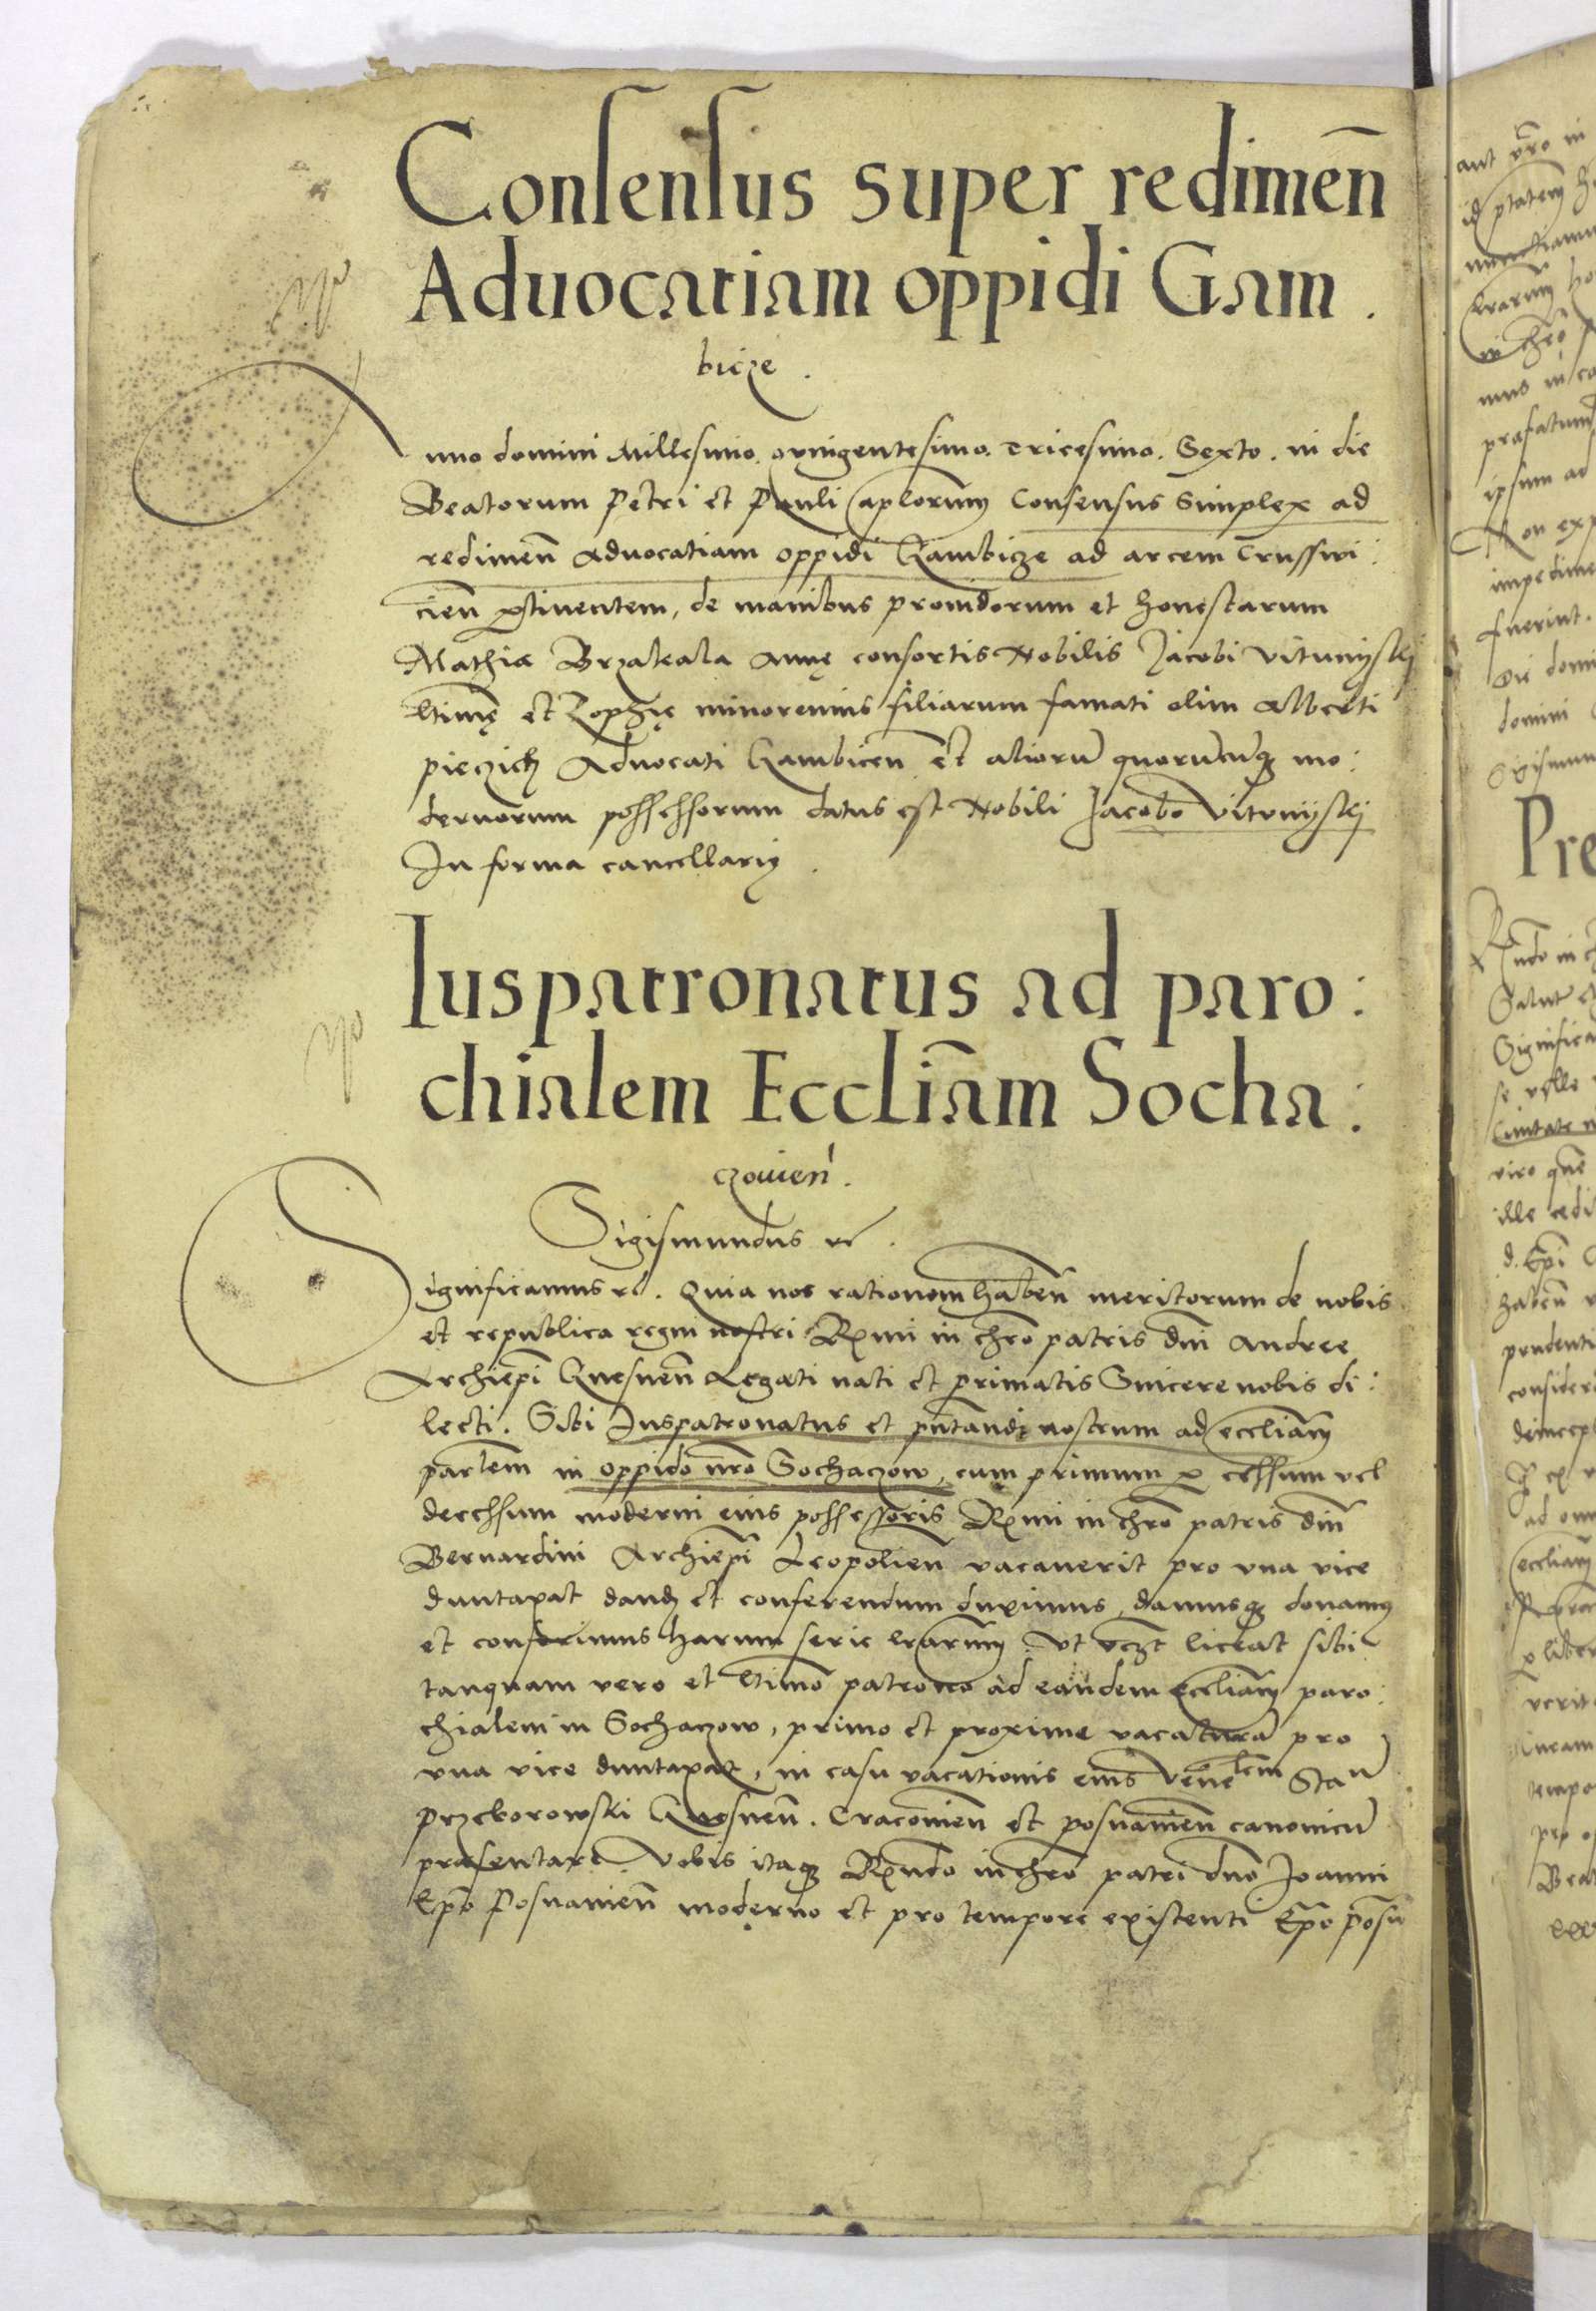 Consensus super redimen̄
Aduocatiam oppidi Gam
bicze.
Anno domini Millesimo quingentesimo tricesimo Sexto. in die
Beatorum Petri et Pauli aplorum̄ Consensus Simplex ad
redimen̄ Aduocatiam oppidi Gambicze ad arcem Crussvi:
cien̄ pertinentem, de manibus prouidorum et honestarum
Mathiæ Brzakala Annę consortis Nobilis Jacobi Vitunijskj
et Zophię minorennis filiarum famati olim Alberti
pieczich Aduocati Gambicen̄ et aliorū quorūcūq mo:
dernorum possessorum datus est Nobili Jacobo Vitunijskj
In forma cancellarię.
Iuspatronatus ad paro:
chialem Eccliam̄ Socha:
czouien̄.
Sigismundus rc.
Significamus rc. Quia nos rationem haben̄ meritorum de nobis
et republica regni nostri Rmi in chro patris dni Andree
Archiepi Gnesnen̄ Legati nati et primatis Sincere nobis di:
lecti. Sibi Iuspatronatus et pn̄tandi nostrum ad eccliam̄
parlem in oppido nr̄o Sochaczow, cum primum per cessum vel
decessum moderni eius possessoris Rmi in chro patris dni
Bernardini Archiepi Leopolien̄ vacauerit pro vna vice
duntaxat dand et conferendum duximus, damusq donamus
et conferimus harum serie lrarum̄. Vt liceat sibi
tanquam vero et ltimo patrono ad eandem eccliam̄ paro:
chialem in Sochaczow, primo et proxime vacaturā pro
vna vice duntaxat, in casu vacationis eius Venelem Stan
Przeborowski Gnesnen̄. Cracouien̄ et posnanien̄ canonicū
præsentare. Vobis itaq Rndo in chro patri dno Joanni
Epo Posnanien̄ moderno et pro tempore existenti Epo posn̄